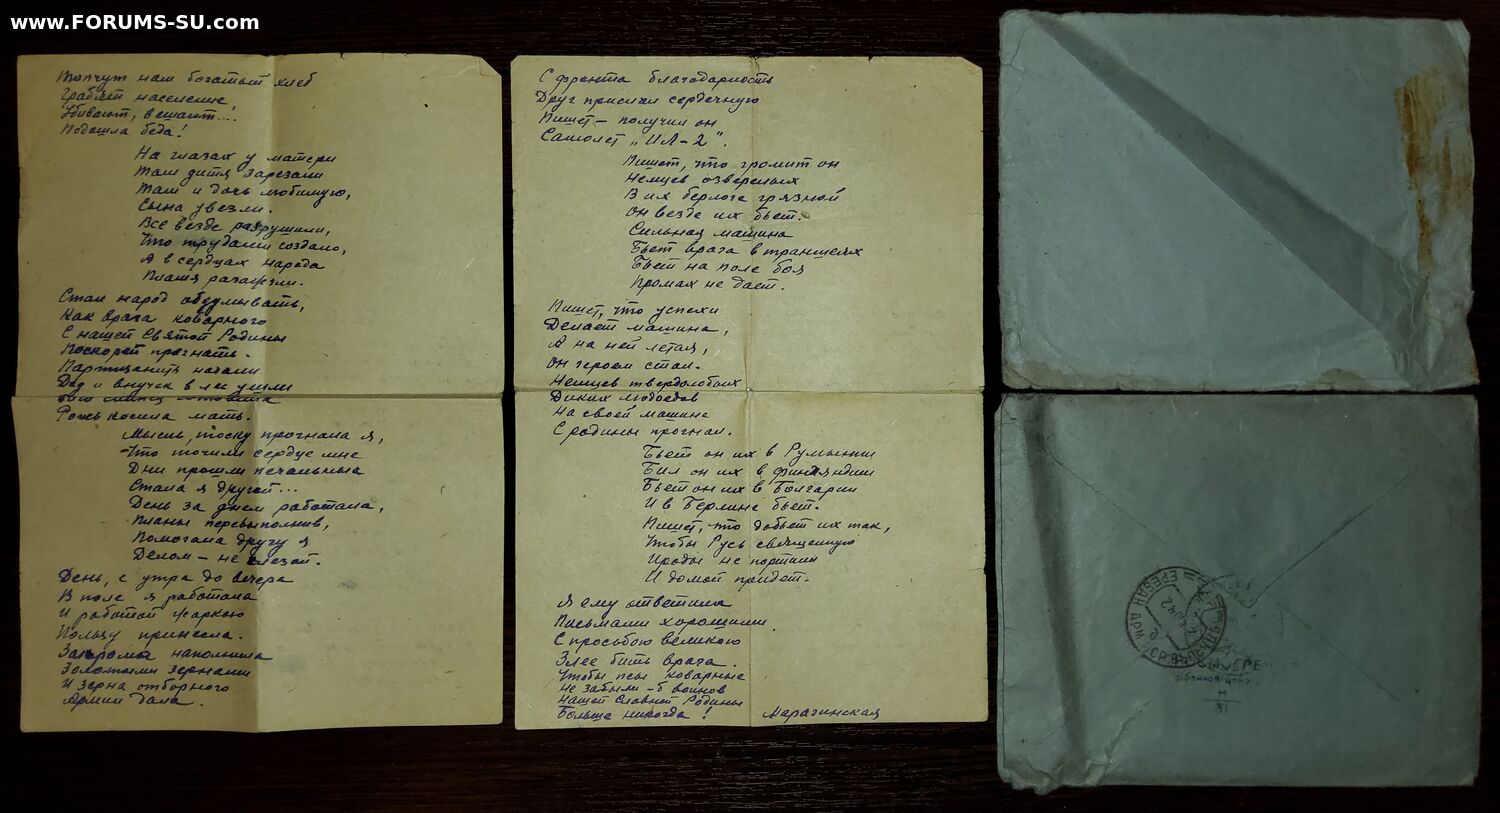 www.FORUMS-SU.com
Топчут наш богатый хлеб
Грабят население,
Убивают, вешают....
Подошла беда!
На глазах у матери
Там дитя зарезали
Там и дочь любимую,
Сына увезли.
Все везде разрушили,
Что трудами создано,
А в сердцах народа
Пламя разожгли.
Стал народ обдумывать,
Как врага коварного
С нашей Святой Родины
Поскорей прогнать.
Партизанить начали
Дед и внучек в лес ушли
Рожь косила мать.
Мысль, тоску прогнала я,
Что точили сердце мне
Дни прошли печальные
Стала я другой...
День за днем работала,
Планы перевыполнив,
Помогала другу я
Делом - не слезой.
День, с утра до вечера
В поле я работала
И работой жаркою
Пользу принесла.
Закрома наполнила
Золотыми зернами
И зерна отборного
Армии дала.
С фронта благодарность
Друг прислал сердечную
Пишет - получил он
Самолет „ИЛ-2".
Пишет, что громит он
Немцев озверелых
В их берлоге грязной
Он везде их бьет.
Сильная машина
Бьет врага в траншеях
Бьет на поле боя
Промах не дает.
Пишет, что успехи
Делает машина,
А на ней летая,
Он героем стал.
Немцев твердолобых
Диких людоедов
На своей машине
С родины прогнал.
Бьет он их в Румынии
Бил он их в Финляндии
Бьет он их в Болгарии
И в Берлине бьет.
Пишет, что добьет их так,
Чтобы Русь священную
Ироды не портили
И домой придет.
Я ему ответила
Письмами хорошими
С просьбою великою
Злее бить врага.
Чтобы псы коварные
Не забыли-б воинов
Нашей Славной Родины
Больше никогда!
Марагинская
ЕРЕВАН АРМ. ССР